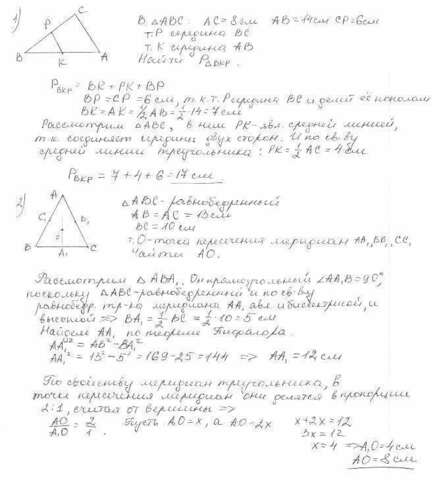 1) C P B K A
В △ABC: AC=8см AB=14см CP=6см
т.P середина BC
т.K середина AB
Найти P_BKP.
P_BKP = BK+PK+BP
BP=CP=6см, т.к т.P середина BC и делит её пополам
BK=AK=1/2AB=1/2·14=7см
Рассмотрим △ABC, в нем PK-явл. средней линией,
т.к. соединяет середины двух сторон. И по св.ву
средней линии треугольника: PK=1/2AC=4см.
P_BKP = 7+4+6=17см
2) A B C A₁ C₁
△ABC-равнобедренный
AB=AC=13см
BC=10см
т.O-точка пересечения медиан AA₁, BB₁, CC₁
Найти AO.
Рассмотрим △ABA₁. Он прямоугольный ∠AA₁B=90°,
поскольку △ABC-равнобедренный и по св-ву
равнобедр. тр-ка медиана AA₁ явл. и биссектрисой, и
высотой => BA₁=1/2·BC=1/2·10=5см
Найдем AA₁ по теореме Пифагора.
AA₁²=AB²-BA₁²
AA₁²=13²-5²=169-25=144 => AA₁=12см
По свойству медиан треугольника, в
точке пересечения медиан они делятся в пропорции
2:1, считая от вершины =>
AO/A₁O=2/1. Пусть A₁O=x, а AO-2x x+2x=12
3x=12
x=4 => A₁O=4см
AO=8см